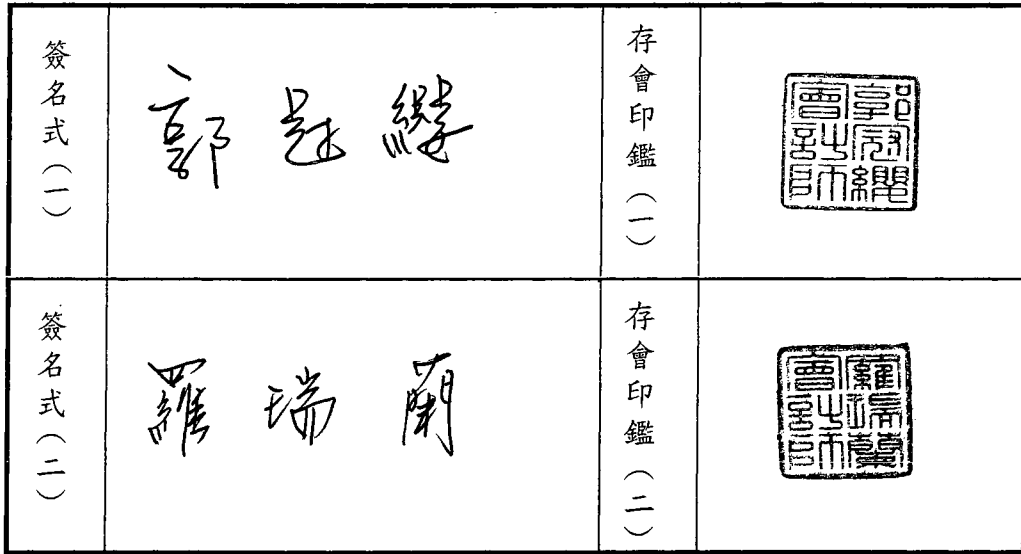 簽名式（一）
郭冠纓
存會印鑑（一）
郭冠纓
會計師
簽名式（二）
羅瑞蘭
存會印鑑（二）
羅瑞蘭
會計師